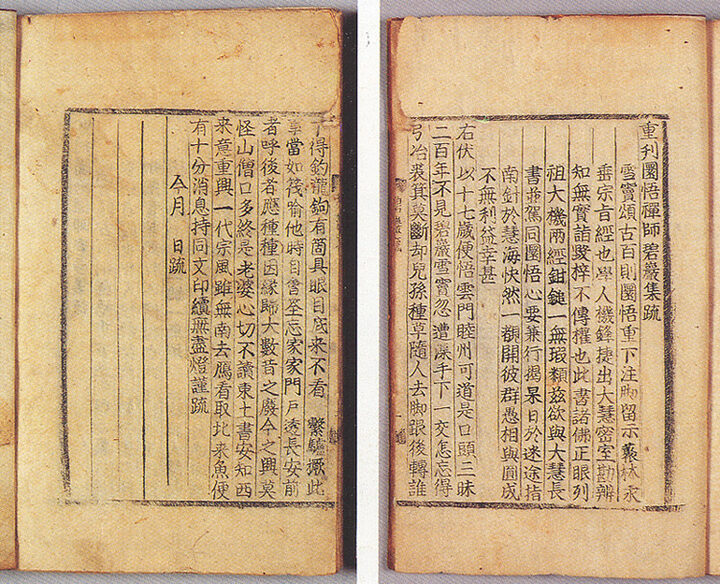 重刊圜悟禪師碧巖集疏
雪竇頌古百則圜悟重下注脚留示叢林永
垂宗旨經也學人機鋒捷出大慧密室勘辨
知無實詣毀梓不傳權也此書諸佛正眼列
祖大機兩經鉗鎚一無瑕纇兹欲與大慧長
書並駕同圜悟心要兼行揭杲日於迷途指
南針於慧海快然一覩開彼群愚相與圓成
不無利益幸甚
右伏以十七歲便悟雲門睦州可道是口頭三昧
二百年不見碧巖雪竇忽遭深手下一交怎忘得
弓冶裘箕莫斷却兒孫種草隨人去脚跟後轉誰
得釣龍鉤有箇具眼目底来不看 繫驢橛此
當如筏喻他時自當坐忘家家門戶透長安前
者呼後者應種種因緣歸大數昔之廢今之興莫
怪山僧口多終是老婆心切不讀東土書安知西
来意重興一代宗風雖無南去鴈看取北来魚便
有十分消息持同文印續無盡燈謹疏
今月 日疏